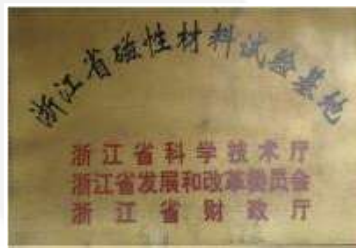 浙江省磁性材料试验基地
浙江省科学技术厅
浙江省发展和改革委员会
浙江省财政厅